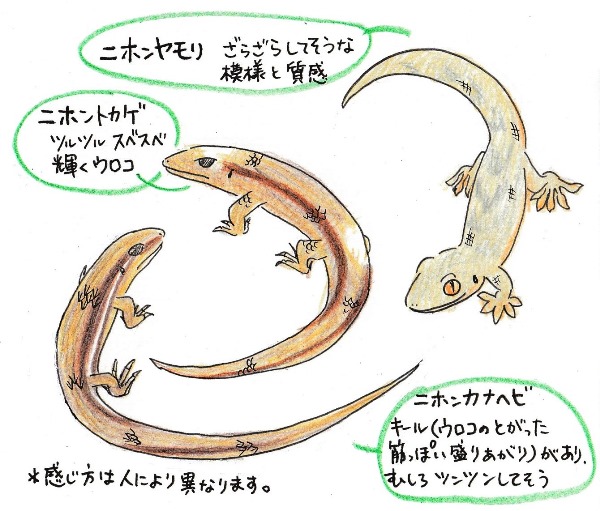 ニホンヤモリ ざらざらしてそうな
模様と質感
ニホントカゲ
ツルツル スベスベ
輝くウロコ
ニホンカナヘビ
キール(ウロコのとがった
筋っぽい盛りあがり)があり、
むしろ ツンツンしてそう
*感じ方は人により異なります。